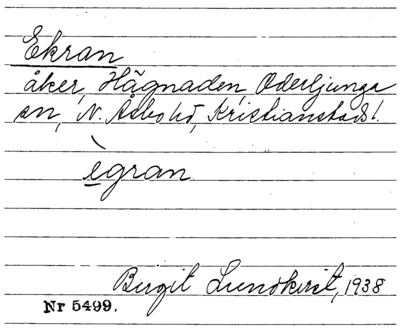 Ekran
åker, Hågnaden, Oderljunga
sn, N. Åsbo hd, Kristianstads l.
ègran
Birgit Lundkvist, 1938
Nr 5499.